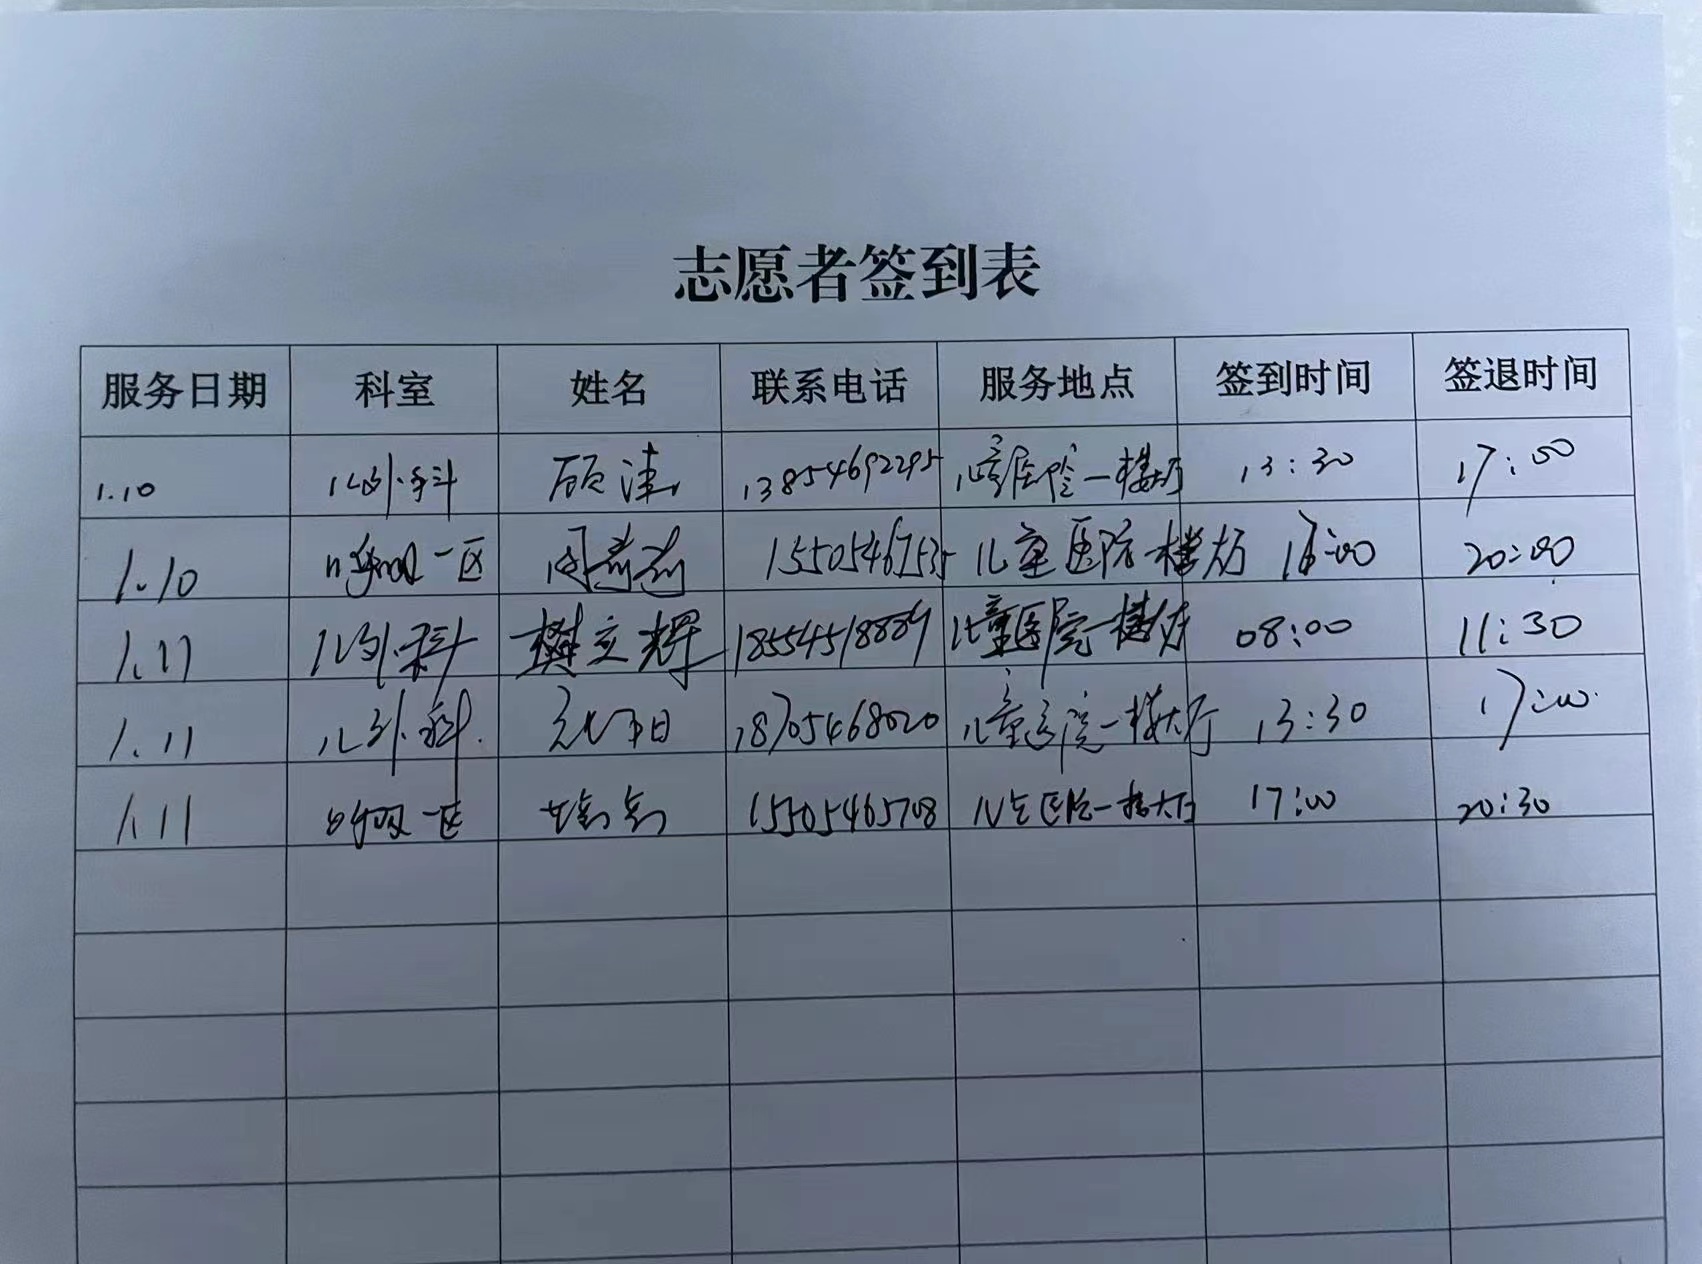 志愿者签到表
服务日期 科室 姓名 联系电话 服务地点 签到时间 签退时间
1.10 儿外科 13854692295 儿童医院一楼大厅 13:30 17:00
1.10 呼吸一区 儿童医院一楼大厅 20:00
1.11 儿外科 樊立辉 儿童医院一楼大厅 08:00 11:30
1.11 儿外科 18705468020 儿童医院一楼大厅 13:30 17:00
1.11 呼吸一区 15505465708 儿童医院一楼大厅 17:00 20:30